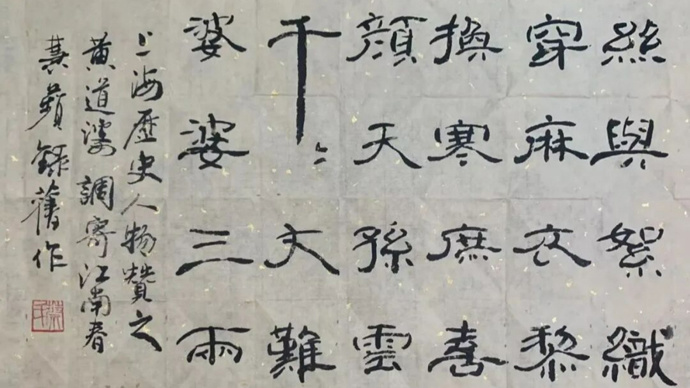 絲與絮織
穿麻衣黎
換寒庶喜
顏天孫雲
千難
婆婆三兩
上海歷史人物贊之
黃道婆 調寄江南春
蘋錄舊作